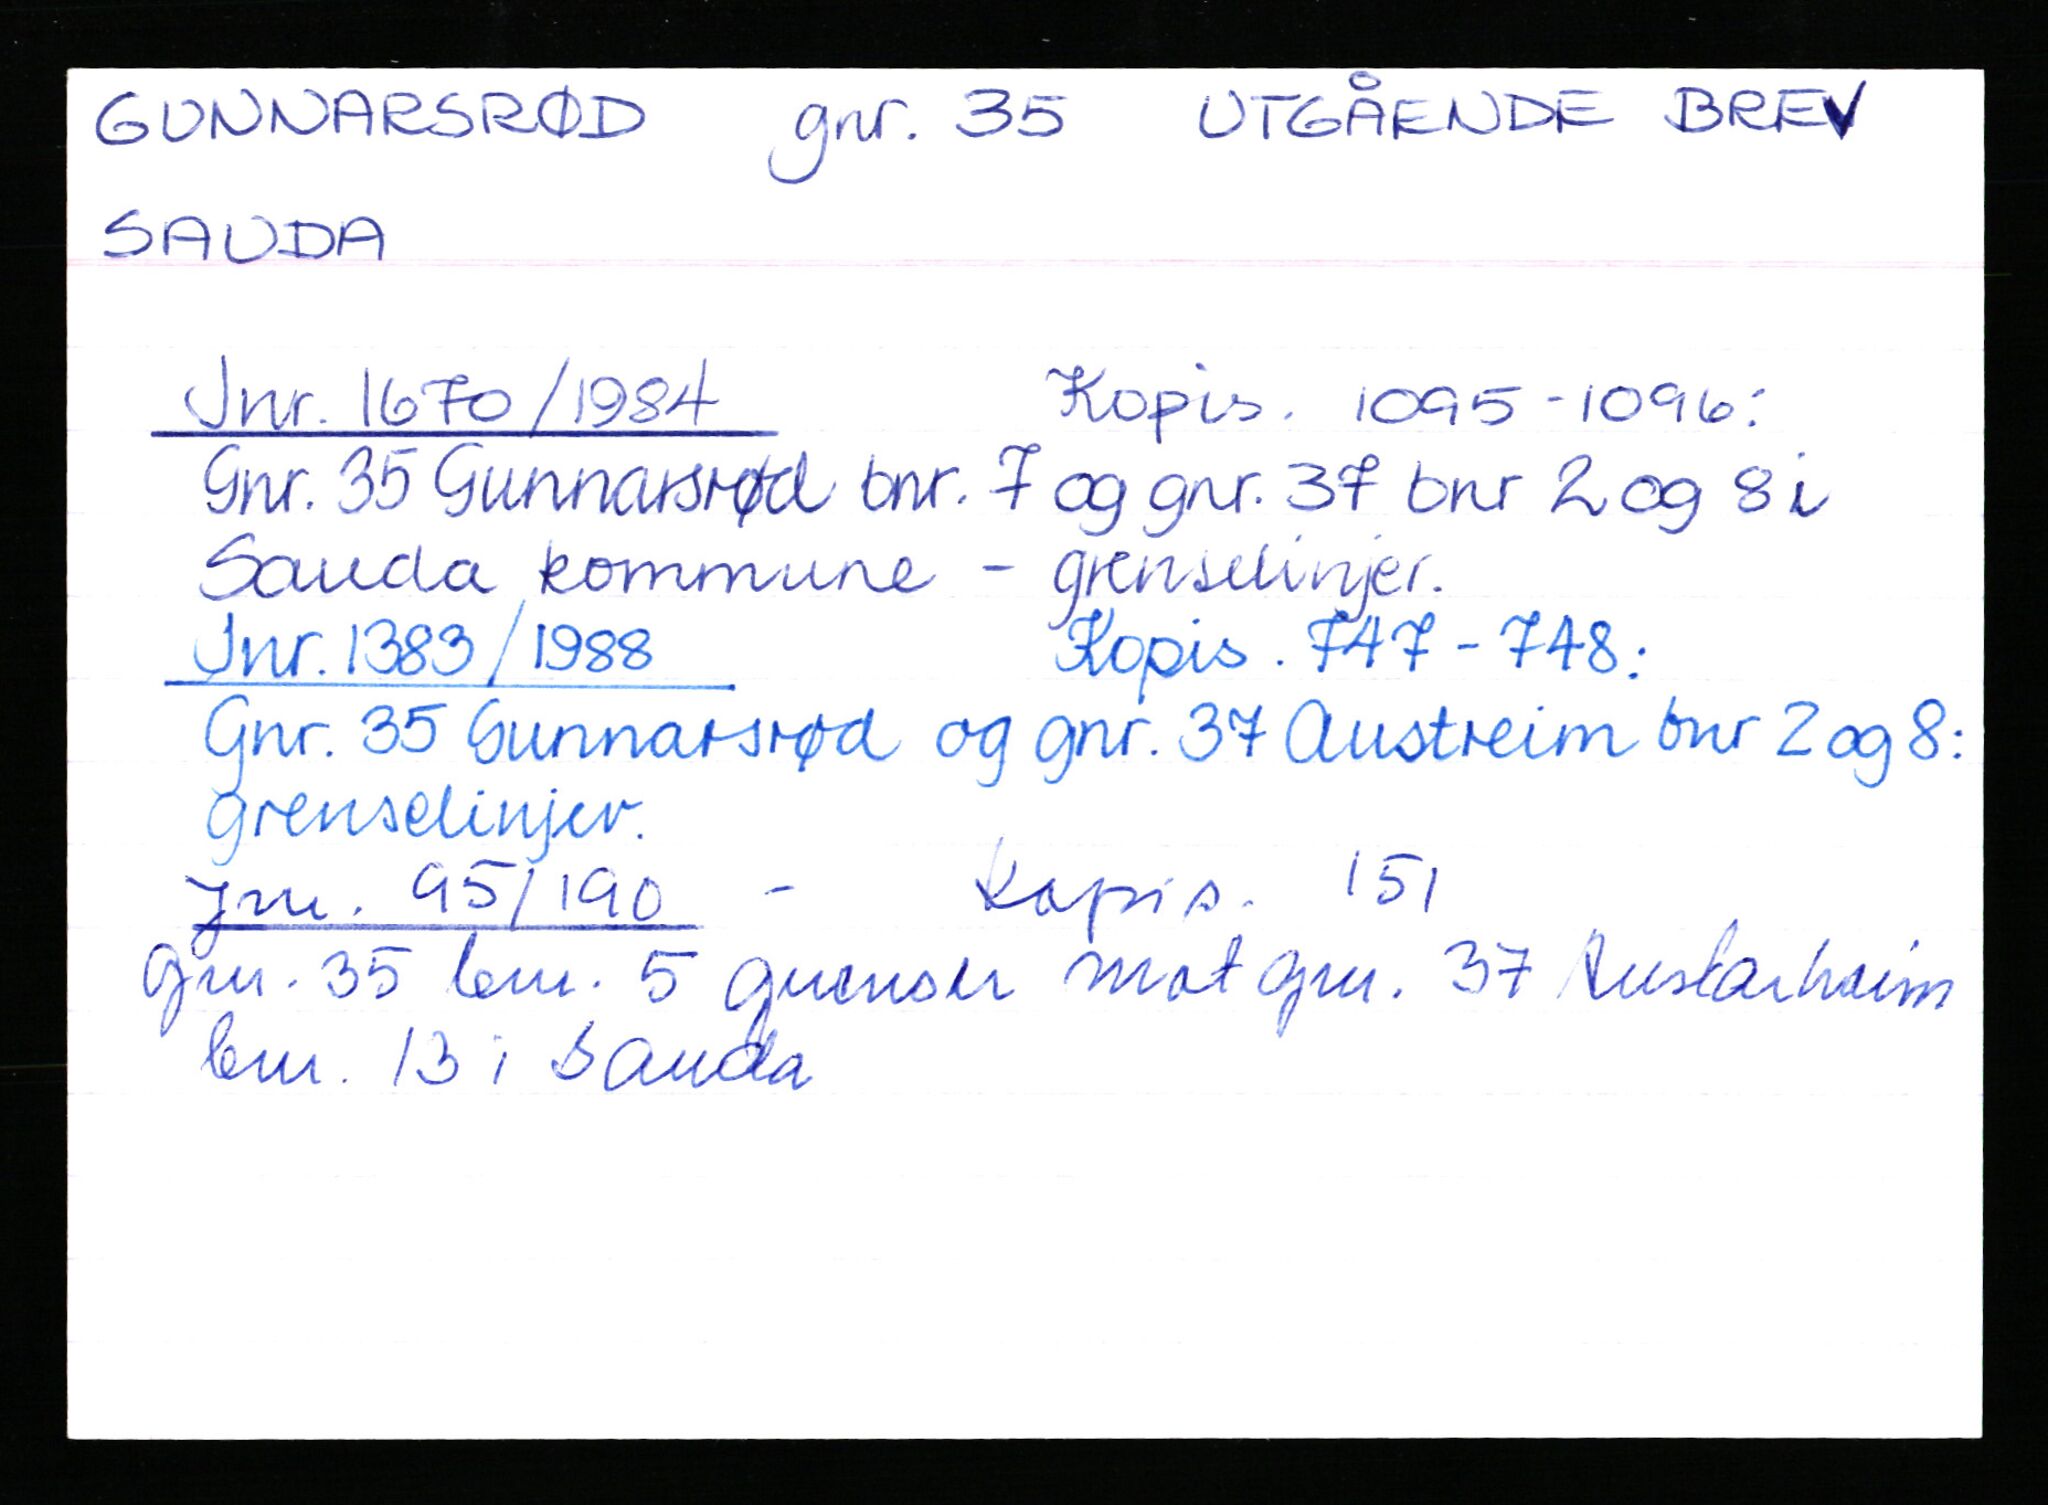 GUNNARSRØD gnr. 35 UTGÅENDE BREV
SAUDA
Jnr. 1670/1984 Kopis. 1095-1096:
Gnr. 35 Gunnarsrød bnr. 7 og gnr. 37 bnr 2 og 8 i
Sauda kommune - grenselinjer.
Jnr. 1383/1988 Kopis. 747-748:
Gnr. 35 Gunnarsrød og gnr. 37 Austreim bnr 2 og 8:
grenselinjer.
Jnr. 95/190 - Kopis. 151
Gnr. 35 bnr. 5 grenser mot gnr. 37 Austarheim
bnr. 13 i Sauda